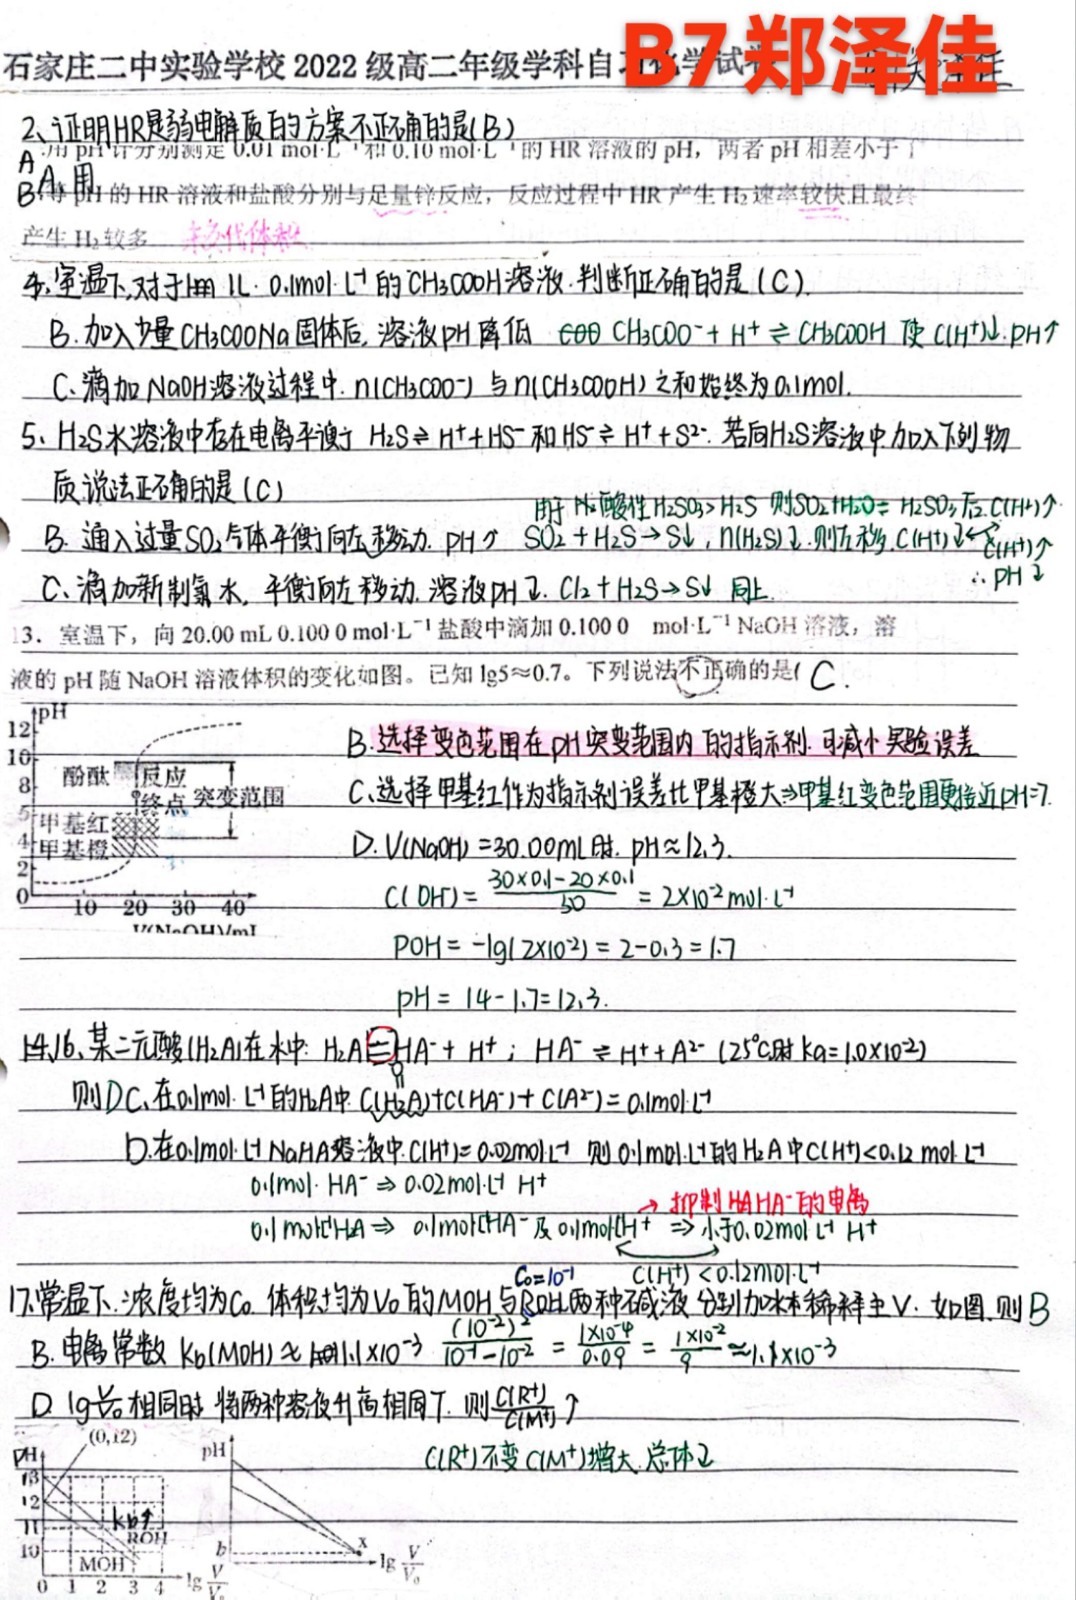 B7郑泽佳
石家庄二中实验学校2022级高二年级学科自习化学试卷
2、证明HR是弱电解质的方案不正确的是(B)
A.用pH计分别测定0.01mol·L⁻¹和0.10mol·L⁻¹的HR溶液的pH，两者pH相差小于1
B.等pH的HR溶液和盐酸分别与足量锌反应，反应过程中HR产生H₂速率较快且最终
产生H₂较多 未交代体积
4、室温下,对于1L 0.1mol·L⁻¹的CH₃COOH溶液.判断正确的是(C)
B.加入少量CH₃COONa固体后,溶液pH降低 CH₃COO⁻+H⁺⇌CH₃COOH 使C(H⁺)↓.pH↑
C、滴加NaOH溶液过程中.n(CH₃COO⁻)与n(CH₃COOH)之和始终为0.1mol.
5、H₂S水溶液中存在电离平衡 H₂S⇌H⁺+HS⁻和HS⁻⇌H⁺+S²⁻.若向H₂S溶液中加入下列物
质,说法正确的是(C)
由于酸性H₂SO₃>H₂S 则SO₂+H₂O=H₂SO₃后C(H⁺)↑
B.通入过量SO₂气体平衡向左移动.pH↑ SO₂+H₂S→S↓,n(H₂S)↓.则左移.C(H⁺)↓ C(H⁺)↑
∴pH↓
C、滴加新制氯水,平衡向左移动.溶液pH↓.Cl₂+H₂S→S↓ 同上
13．室温下，向20.00 mL 0.100 0 mol·L⁻¹盐酸中滴加0.100 0 mol·L⁻¹ NaOH溶液，溶
液的pH随NaOH溶液体积的变化如图。已知lg5≈0.7。下列说法不正确的是( C.
pH
12
10
8
5
4
2
0
酚酞
反应
终点
突变范围
甲基红
甲基橙
10 20 30 40
V(NaOH)/mL
B.选择变色范围在pH突变范围内的指示剂.可减小实验误差
C、选择甲基红作为指示剂误差比甲基橙大⇒甲基红变色范围更接近pH=7.
D.V(NaOH)=30.00mL时.pH≈12.3.
C(OH⁻)=(30×0.1-20×0.1)/50=2×10⁻²mol·L⁻¹
POH=-lg(2×10⁻²)=2-0.3=1.7
pH=14-1.7=12.3.
16、某二元酸(H₂A)在水中:H₂A=HA⁻+H⁺;HA⁻⇌H⁺+A²⁻(25℃时Ka=1.0×10⁻²)
0
则D C、在0.1mol·L⁻¹的H₂A中 C(H₂A)+C(HA⁻)+C(A²⁻)=0.1mol·L⁻¹
D.在0.1mol·L⁻¹ NaHA溶液中.C(H⁺)=0.02mol·L⁻¹ 则0.1mol·L⁻¹的H₂A中C(H⁺)<0.12mol·L⁻¹
0.1mol·HA⁻⇒0.02mol·L⁻¹ H⁺
→抑制HA⁻的电离
0.1mol·L⁻¹H₂A⇒0.1mol·L⁻¹HA⁻及0.1mol·L⁻¹H⁺⇒小于0.02mol·L⁻¹ H⁺
C₀=10⁻¹ C(H⁺)<0.12mol·L⁻¹
17.常温下.浓度均为C₀.体积均为V₀的MOH与ROH两种碱液分别加水稀释至V.如图.则B
B.电离常数Kb(MOH)≈1.1×10⁻³ (10⁻²)²/(10⁻¹-10⁻²)=(1×10⁻⁴)/0.09=(1×10⁻²)/9≈1.1×10⁻³
D.lg V/V₀相同时.将两种溶液升高相同T.则C(R⁺)/C(M⁺)↑
C(R⁺)不变C(M⁺)增大.总体↓
pH
(0,12)
13
12
11
10
Kb↑
ROH
MOH
0 1 2 3 4 lg V/V₀
pH
b
x
lg V/V₀